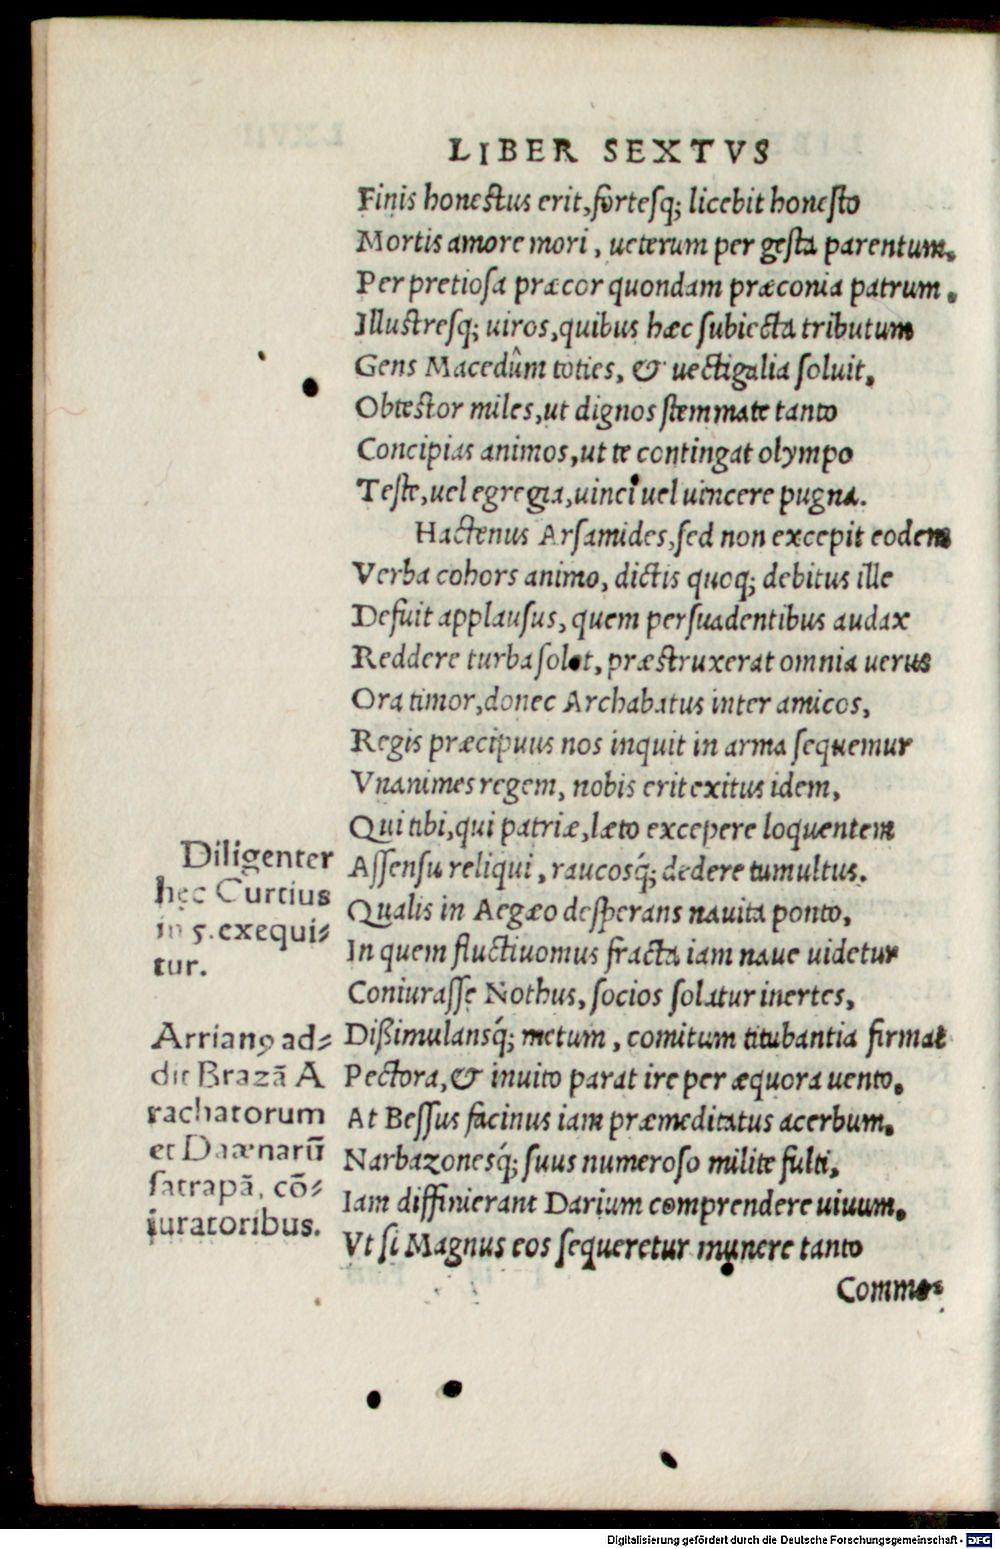 LIBER SEXTVS
Finis honestus erit, fortesq; licebit honesto
Mortis amore mori, ueterum per gesta parentum.
Per pretiosa præcor quondam præconia patrum.
Illustresq; uiros, quibus hæc subiecta tributum
Gens Macedûm toties, & uectigalia soluit,
Obtestor miles, ut dignos stemmate tanto
Concipias animos, ut te contingat olympo
Teste, uel egregia, uinci uel uincere pugna.
Hactenus Arsamides, sed non excepit eodem
Verba cohors animo, dictis quoq; debitus ille
Defuit applausus, quem persuadentibus audax
Reddere turba solet, præstruxerat omnia uerus
Ora timor, donec Archabatus inter amicos,
Regis præcipuus nos inquit in arma sequemur
Vnanimes regem, nobis erit exitus idem,
Qui tibi, qui patriæ, læto excepere loquentem
Assensu reliqui, raucosq́; dedere tumultus.
Qualis in Aegæo desperans nauita ponto,
In quem fluctiuomus fracta iam naue uidetur
Coniurasse Nothus, socios solatur inertes,
Dißimulansq́; metum, comitum titubantia firmat
Pectora, & inuito parat ire per æquora uento.
At Bessus facinus iam præmeditatus acerbum.
Narbazonesq́; suus numeroso milite fulti,
Iam diffinierant Darium comprendere uiuum.
Vt si Magnus eos sequeretur munere tanto
Commo-
Diligenter
hęc Curtius
in 5. exequi-
tur.
Arrianꝯ ad-
dit Brazā A
rachatorum
et Daænarū
satrapā, cō-
iuratoribus.
Digitalisierung gefördert durch die Deutsche Forschungsgemeinschaft - DFG